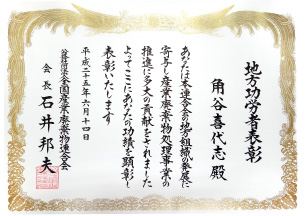 地方功労者表彰
角谷喜代志殿
あなたは本連合会の地方組織の発展に
寄与し産業廃棄物処理事業の
推進に多大の貢献をされました
よってここにあなたの功績を顕彰し
表彰いたします
平成二十五年六月十四日
公益社団法人全国産業廃棄物連合会
会長 石井邦夫